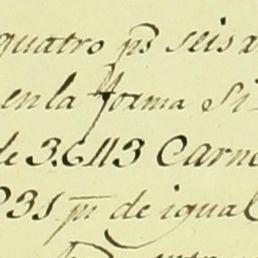 quatro ps seis
en la forma Si
de 3.6113 Carne
231 pr de igual